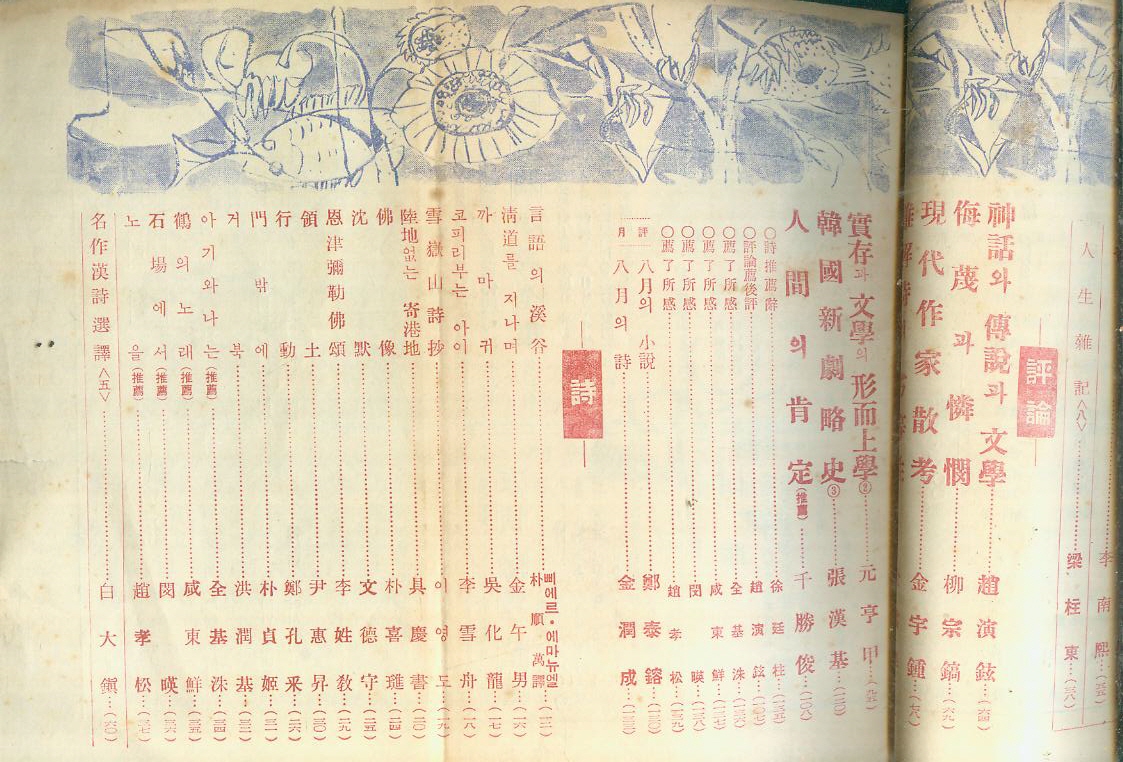 李南熙
人生雜記〈八〉 梁柱東
評論
神話와 傳說과 文學 趙演鉉
侮蔑과 憐憫 柳宗鎬
現代作家散考 金宇鍾
實存과 文學의 形而上學② 元亨甲
韓國新劇略史③ 張漢基
人間의 肯定(推薦) 千勝俊
○詩推薦辭 徐廷柱
○評論薦後評 趙演鉉
○薦了所感 全基洙
○薦了所感 咸東鮮
○薦了所感 閔暎
○薦了所感 趙孝松
月評 八月의 小說 鄭泰鎔
八月의 詩 金潤成
詩
言語의 溪谷 삐에르·에마뉴엘 朴順萬譯
淸道를 지나며 金午男 (一六)
까마귀 吳化龍 (一七)
코피리부는 아이 李雪舟 (一八)
雪嶽山詩抄 이영도 (一九)
陸地없는 寄港地 具慶書 (二〇)
佛像 朴喜璡 (二四)
沈默 文德守 (二五)
恩津彌勒佛頌 李姓敎
領土 尹惠昇
行動 鄭孔采
門밖에 朴貞姬
거북 洪潤基
아기와나는(推薦) 全基洙
鶴의노래(推薦) 咸東鮮
石場에서(推薦) 閔暎
노을(推薦) 趙孝松
名作漢詩選譯〈五〉 白大鎭